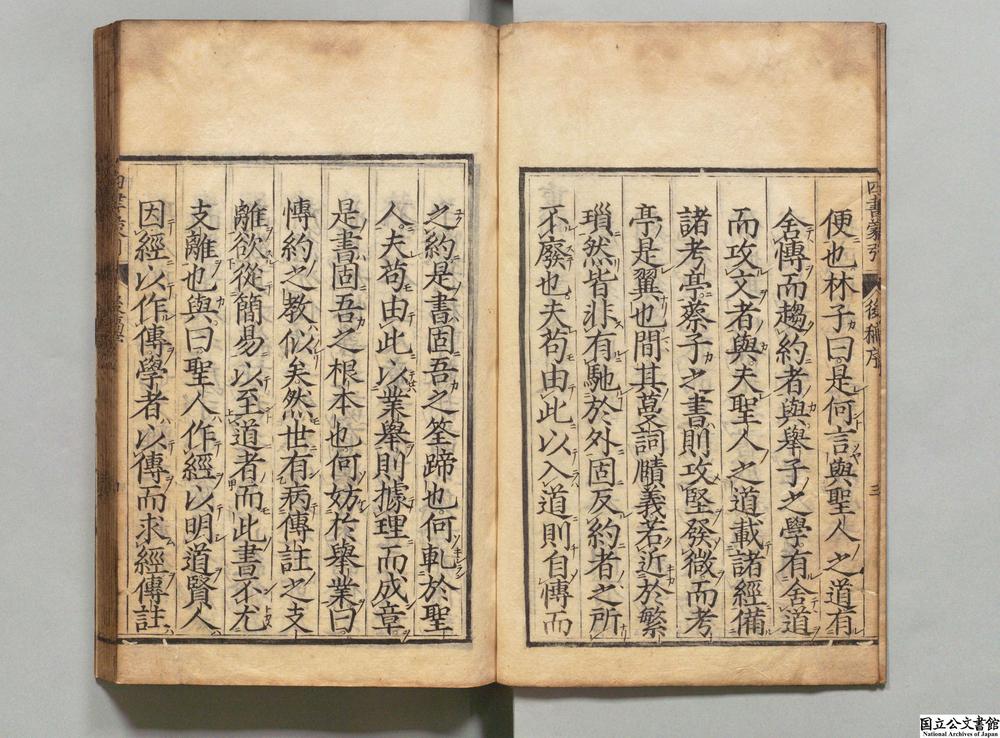 便也林子曰是何言與聖人之道有
舍傳而趨約者與舉子之學有舍道
而攻文者與夫聖人之道載諸經備
諸考亭蔡子之書則攻堅發微而考
亭是翼也間其蔓詞賾義若近於繁
瑣然皆非有馳於外固反約者之所
不廢也夫苟由此以入道則自博而
之約是書固吾之筌蹄也何軋於聖
人夫苟由此以業舉則據理而成章
是書固吾之根本也何妨於舉業曰
博約之教似矣然世有病傳註之支
離欲從簡易以至道者而此書不尤
支離也與曰聖人作經以明道賢人
因經以作傳學者以傳而求經傳註
四書蒙引
後稿序
三
国立公文書館
National Archives of Japan